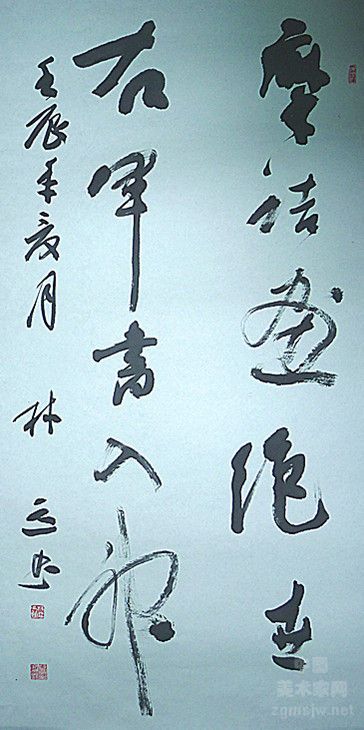 摩诘画绝世
右军書入神
壬辰年夏月
林
中国
美术家网
zgmsjw.net